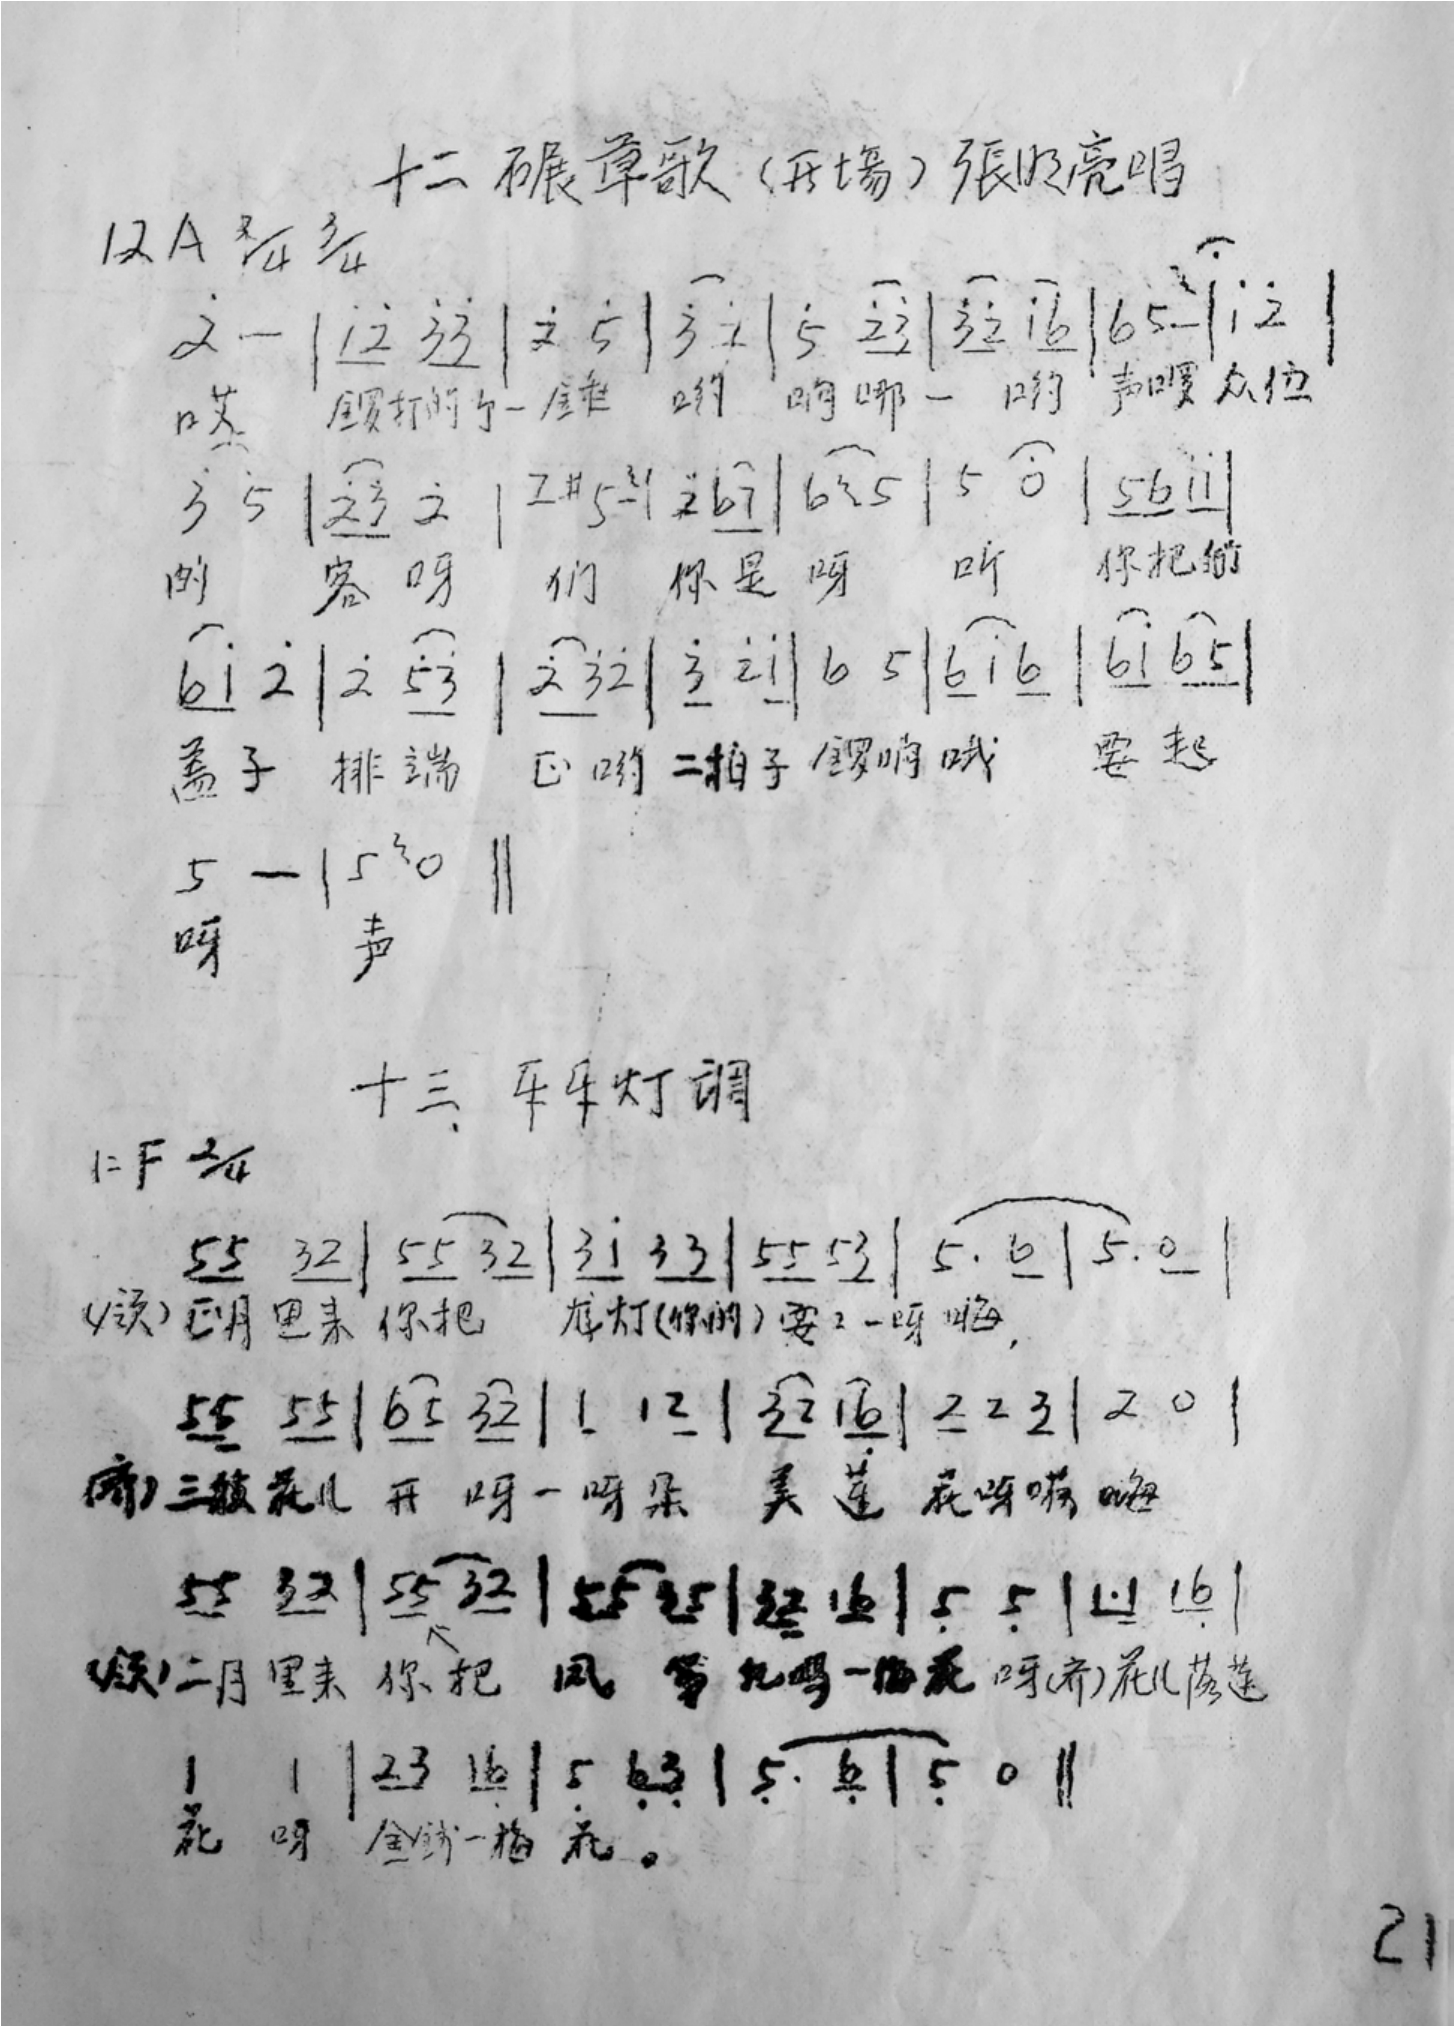 十二 碾草歌（开場）張明亮唱
1=A 2/4 3/4
2̇ — | 1̇2̇ 3̇3̇ | 2̇ 5̇ | 3̇ 2̇ | 5̇ 2̇3̇ | 3̇2̇ 1̇6 | 6 5 — | 1̇ 2̇ |
锣打的个一錘 哟 响哪一 哟 声啰 众位
3̇ 5 | 2̇3̇ 2̇ | 5 | 2̇ 67 | 6 5 | 5 0 | 56 1̇1̇ |
的 客 呀 们 你是 呀 听 你把
61̇ 2̇ | 2̇ 5̇3̇ | 2̇ 3̇2̇ | 3̇ 2̇1̇ | 6 5 | 6 1̇ 6 | 61̇ 65 |
盖子 排端 正哟 二拍子 锣响哦 要起
5 — | 5 0 ‖
呀 声
十三、车车灯调
1=F 2/4
55 32 | 55 32 | 31̇ 33 | 55 53 | 5. 6 | 5. 0 |
(领) 正月里来 你把 龙灯(你的) 要 一呀 嗨,
55 55 | 65 32 | 1 12 | 32 16̣ | 2 2 3 | 2 0 |
(齐) 三枝花儿 开 呀一呀朵 美 莲 花呀 嗨
55 32 | 55 32 | 55 35 | 32 16̣ | 5̣ 5̣ | 1.1 16̣ |
(领) 二月里来 你把 风 筝 扎 一梅花 呀(齐)花儿落莲
1 1 | 23 16̣ | 5̣ 6̣3̣ | 5̣. 6̣ | 5̣ 0 ‖
花 呀 金钱一梅 花。
21